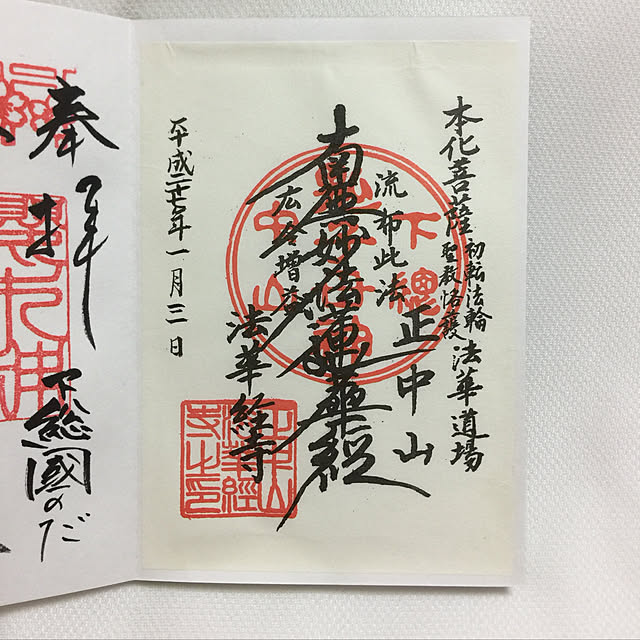 本化菩薩
初転法輪
聖教恪護
法華道場
正中山
流布此法
南無妙法蓮華経
広令増益
法華経寺
平成二十七年一月三日
下總
奉拝
下総國のだ